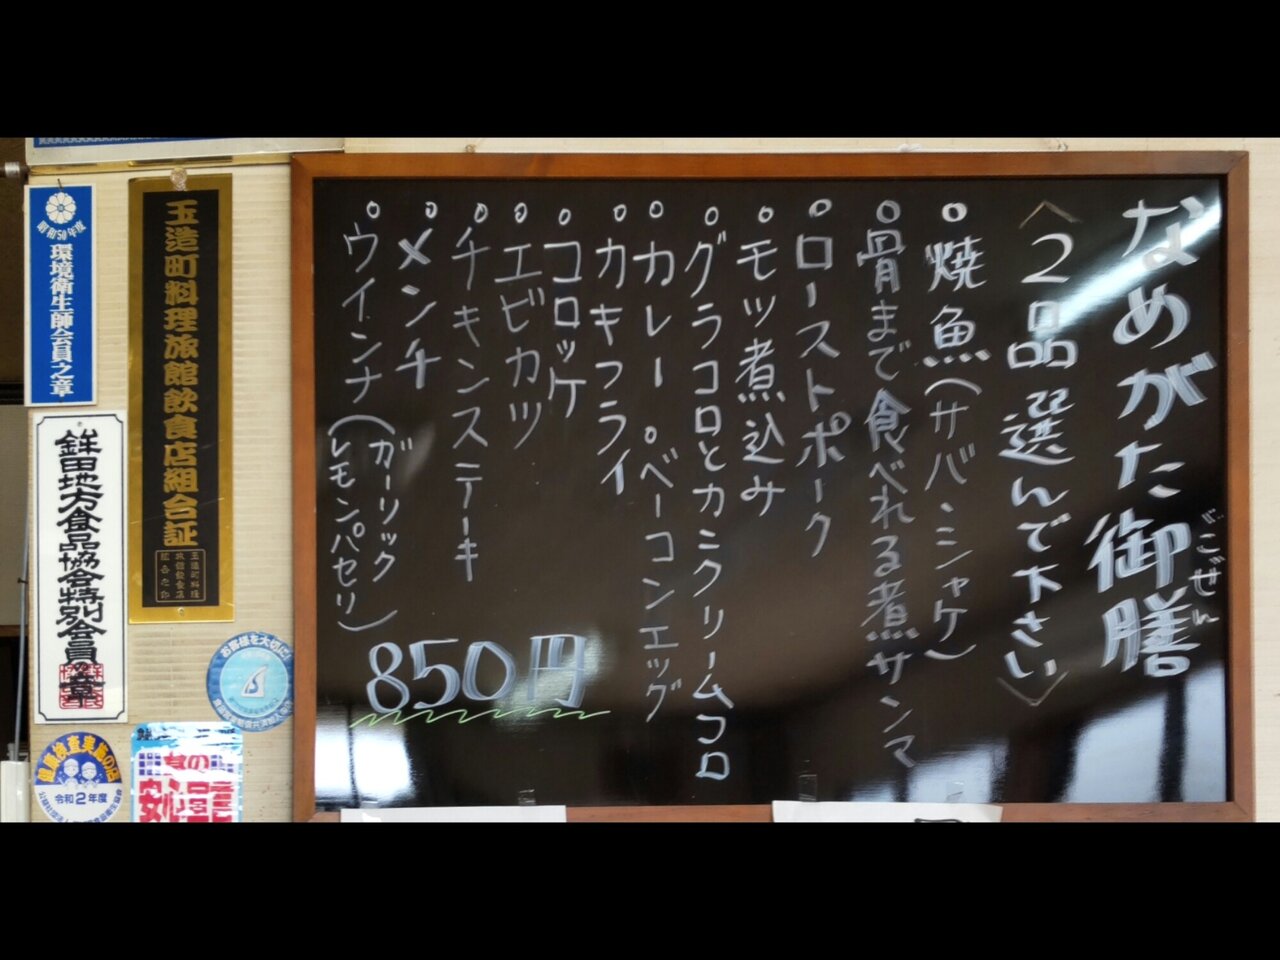 なめがた御膳
ごぜん
〈2品選んで下さい〉
○焼魚(サバ・シャケ)
○骨まで食べれる煮サンマ
○ローストポーク
○モツ煮込み
○グラコロとカニクリームコロ
○カレー ○ベーコンエッグ
○カキフライ
○コロッケ
○エビカツ
○チキンステーキ
○メンチ
○ウインナ(ガーリック
レモンパセリ)
850円
玉造町料理旅館飲食店組合証
昭和50年度
環境衛生師会員之章
鉾田地方食品協会特別会員の章
お客様を大切に
令和2年度
食の
安心